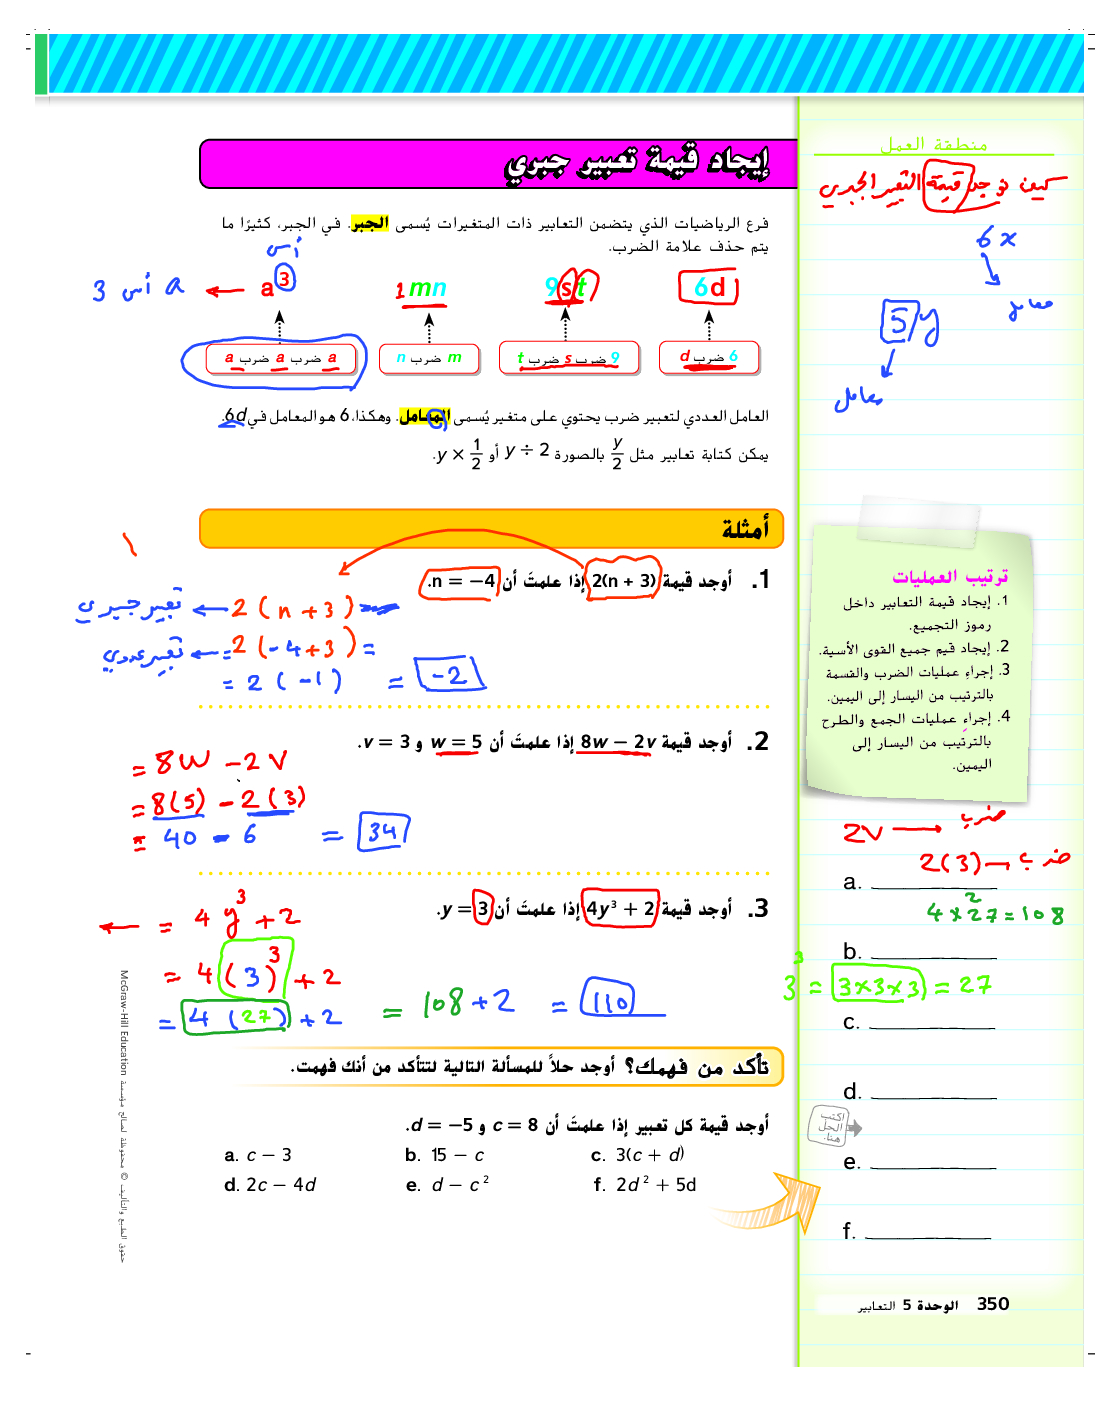 إيجاد قيمة تعبير جبري
فرع الرياضيات الذي يتضمن التعابير ذات المتغيرات يُسمى الجبر. في الجبر، كثيرًا ما
يتم حذف علامة الضرب.
أس
6d
9st
1mn
a³ ← a أس 3
6 ضرب d
9 ضرب s ضرب t
m ضرب n
a ضرب a ضرب a
العامل العددي لتعبير ضرب يحتوي على متغير يُسمى المعامل. وهكذا، 6 هو المعامل في 6d.
يمكن كتابة تعابير مثل y/2 بالصورة y ÷ 2 أو y × 1/2.
أمثلة
1. أوجد قيمة 2(n + 3) إذا علمتَ أن n = −4.
2 (n + 3) ← تعبير جبري
= 2 (-4 + 3) = ← تعبير عددي
= 2 (-1) = -2
2. أوجد قيمة 8w − 2v إذا علمتَ أن w = 5 و v = 3.
= 8w - 2v
= 8(5) - 2(3)
= 40 - 6 = 34
3. أوجد قيمة 4y³ + 2 إذا علمتَ أن y = 3.
← = 4y³ + 2
= 4(3)³ + 2
= 4(27) + 2 = 108 + 2 = 110
تأكد من فهمك؟ أوجد حلاً للمسألة التالية لتتأكد من أنك فهمت.
أوجد قيمة كل تعبير إذا علمتَ أن c = 8 و d = −5.
a. c − 3
b. 15 − c
c. 3(c + d)
d. 2c − 4d
e. d − c²
f. 2d² + 5d
منطقة العمل
كيف نوجد قيمة التعبير الجبري
6x
معامل
5y
معامل
ترتيب العمليات
1. إيجاد قيمة التعابير داخل
رموز التجميع.
2. إيجاد قيم جميع القوى الأسية.
3. إجراءِ عمليات الضرب والقسمة
بالترتيب من اليسار إلى اليمين.
4. إجراءِ عمليات الجمع والطرح
بالترتيب من اليسار إلى
اليمين.
2v → ضرب
2(3) → ضرب
a.
2
4 × 27 = 108
b.
3³ = 3×3×3 = 27
c.
d.
اكتب
الحل
هنا.
e.
f.
350 الوحدة 5 التعابير
حقوق الطبع والتأليف © محفوظة لصالح مؤسسة McGraw-Hill Education